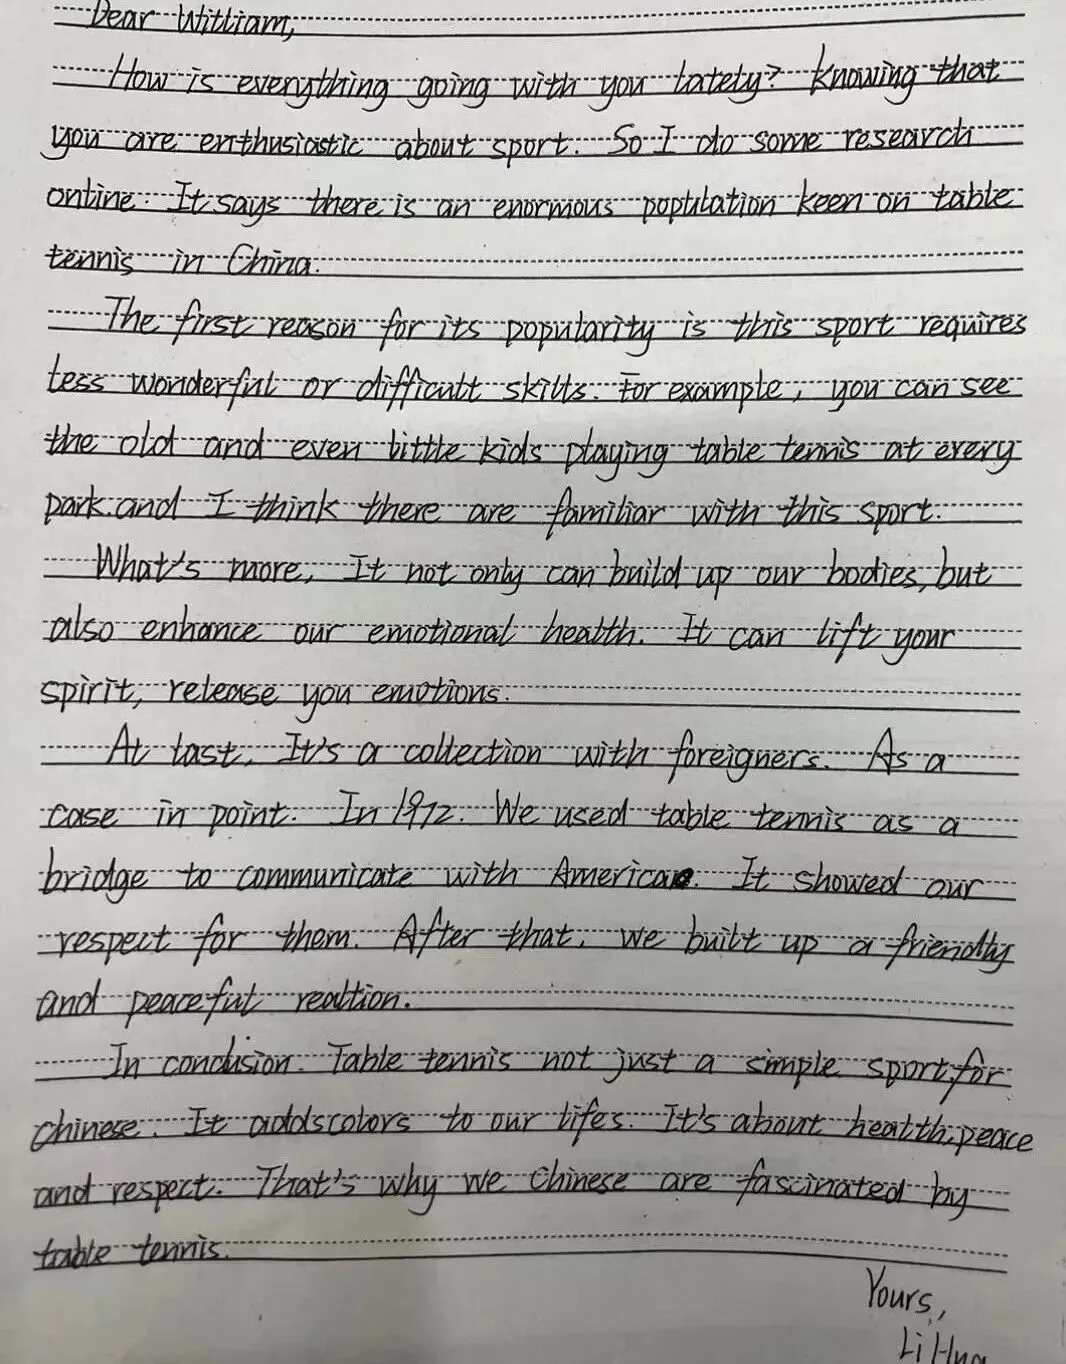 Dear William,
How is everything going with you lately? Knowing that
you are enthusiastic about sport. So I do some research
online. It says there is an enormous population keen on table
tennis in China.
The first reason for its popularity is this sport requires
less wonderful or difficult skills. For example, you can see
the old and even little kids playing table tennis at every
park.and I think there are familiar with this sport.
What's more, It not only can build up our bodies, but
also enhance our emotional health. It can lift your
spirit, release you emotions.
At last, It's a collection with foreigners. As a
case in point. In 1972. We used table tennis as a
bridge to communicate with America. It showed our
respect for them. After that, we built up a friendly
and peaceful realtion.
In conclusion. Table tennis not just a simple sport for
chinese. It adds colors to our lifes. It's about health, peace
and respect. That's why we Chinese are fascinated by
table tennis.
Yours,
Li Hua